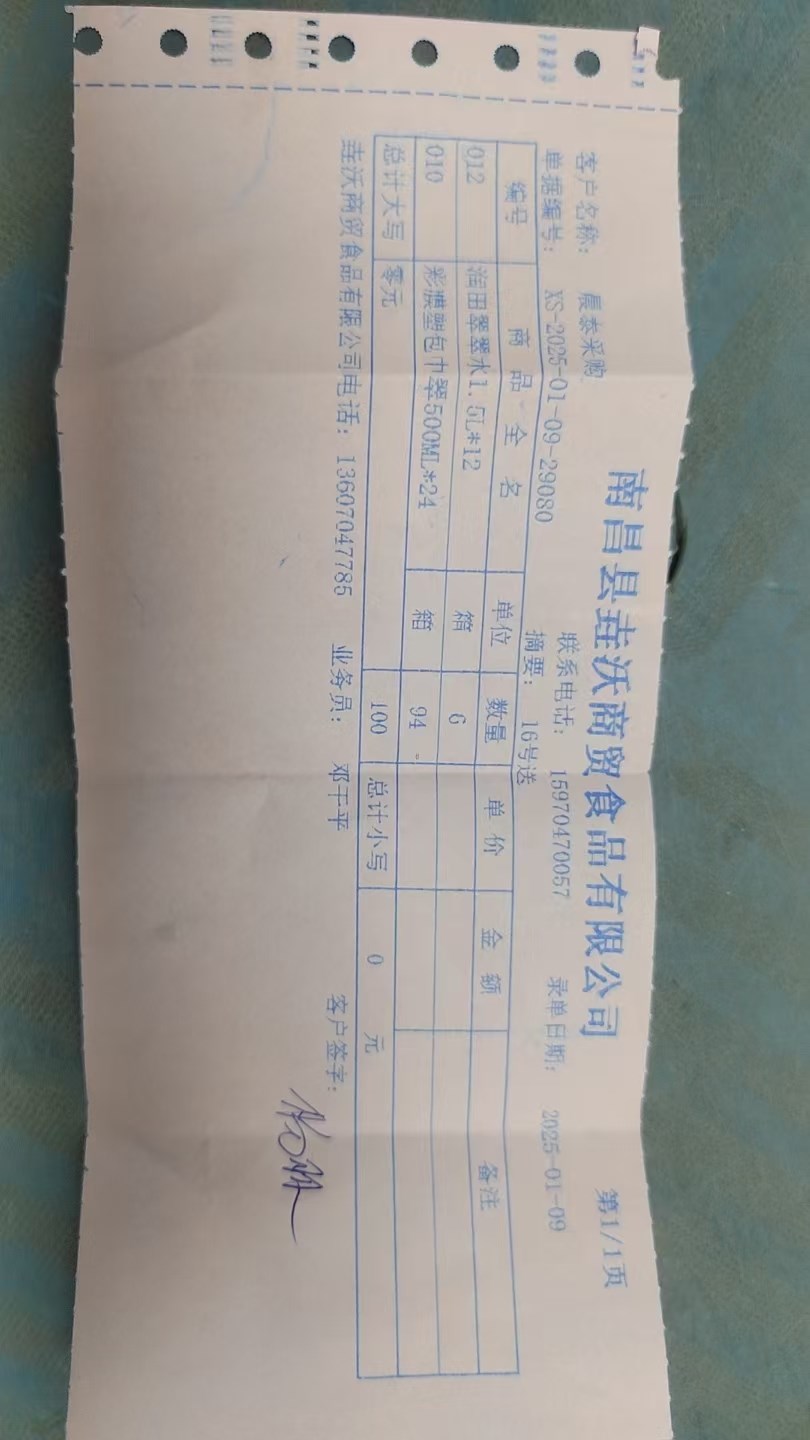 南昌县垚沃商贸食品有限公司
第1/1页
客户名称： 晨泰采购 联系电话： 15970470057 录单日期： 2025-01-09
单据编号： XS-2025-01-09-29080 摘要： 16号送
编号 商品全名 单位 数量 单价 金额 备注
012 润田翠翠水1.5L*12 箱 6
010 彩膜塑包巾翠500ML*24 箱 94
总计大写 零元 100 总计小写 0 元
垚沃商贸食品有限公司电话： 13607047785 业务员： 邓干平 客户签字：